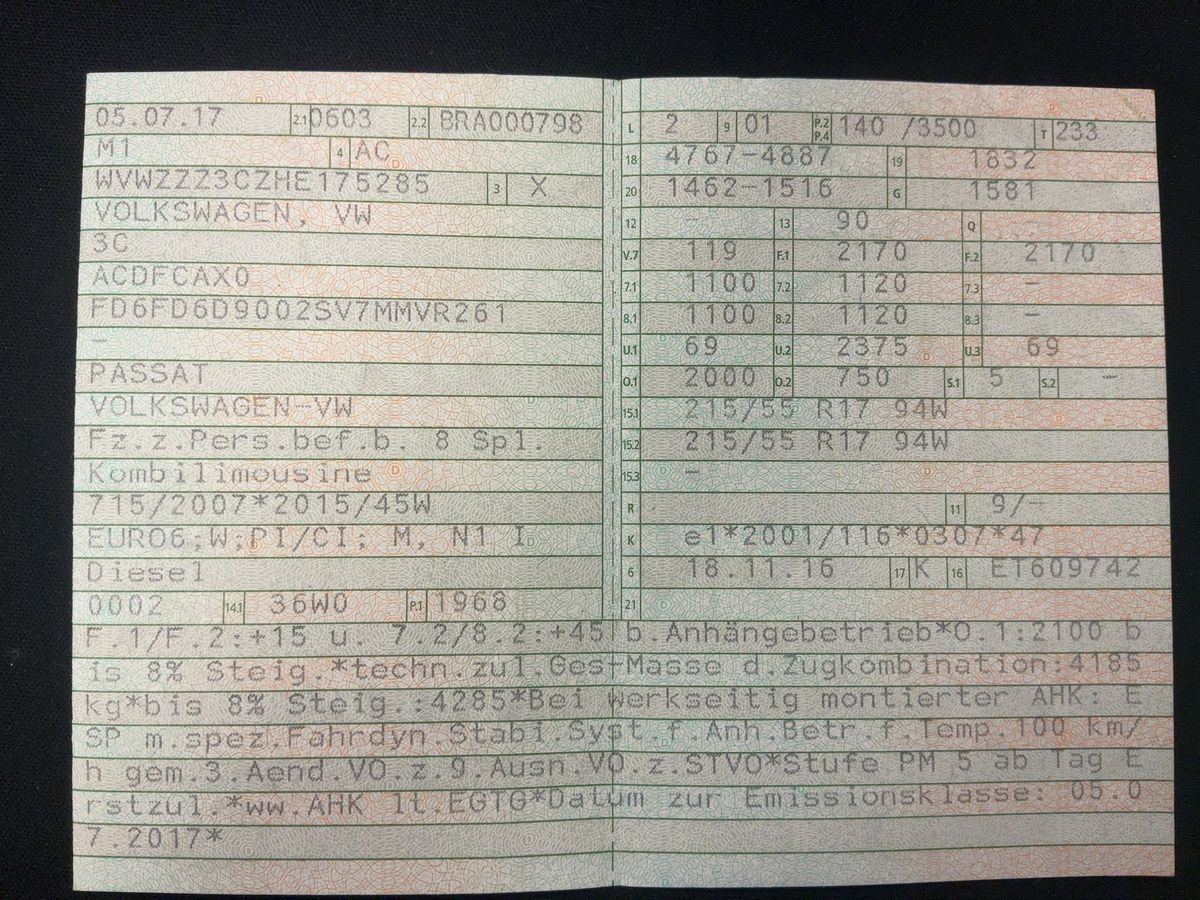 05.07.17 2.1 0603 2.2 BRA000798
M1 4 AC
WVWZZZ3CZHE175285 3 X
VOLKSWAGEN, VW
3C
ACDFCAX0
FD6FD6D9002SV7MMVR261
–
PASSAT
VOLKSWAGEN-VW
Fz.z.Pers.bef.b. 8 Spl.
Kombilimousine
715/2007*2015/45W
EURO6;W;PI/CI; M, N1 I
Diesel
0002 14.1 36W0 P.1 1968
L 2 9 01 P.2 P.4 140 /3500 T 233
18 4767-4887 19 1832
20 1462-1516 G 1581
12 – 13 90 Q –
V.7 119 F.1 2170 F.2 2170
7.1 1100 7.2 1120 7.3 –
8.1 1100 8.2 1120 8.3 –
U.1 69 U.2 2375 U.3 69
O.1 2000 O.2 750 S.1 5 S.2 –
15.1 215/55 R17 94W
15.2 215/55 R17 94W
15.3 –
R 11 9/-
K e1*2001/116*0307*47
6 18.11.16 17 K 16 ET609742
21
F.1/F.2:+15 u. 7.2/8.2:+45 b.Anhängebetrieb*O.1:2100 b
is 8% Steig.*techn.zul.Ges-Masse d.Zugkombination:4185
kg*bis 8% Steig.:4285*Bei werkseitig montierter AHK: E
SP m.spez.Fahrdyn.Stabi.Syst.f.Anh.Betr.f.Temp.100 km/
h gem.3.Aend.VO.z.9.Ausn.VO.z.STVO*Stufe PM 5 ab Tag E
rstzul.*ww.AHK lt.EGTG*Datum zur Emissionsklasse: 05.0
7.2017*